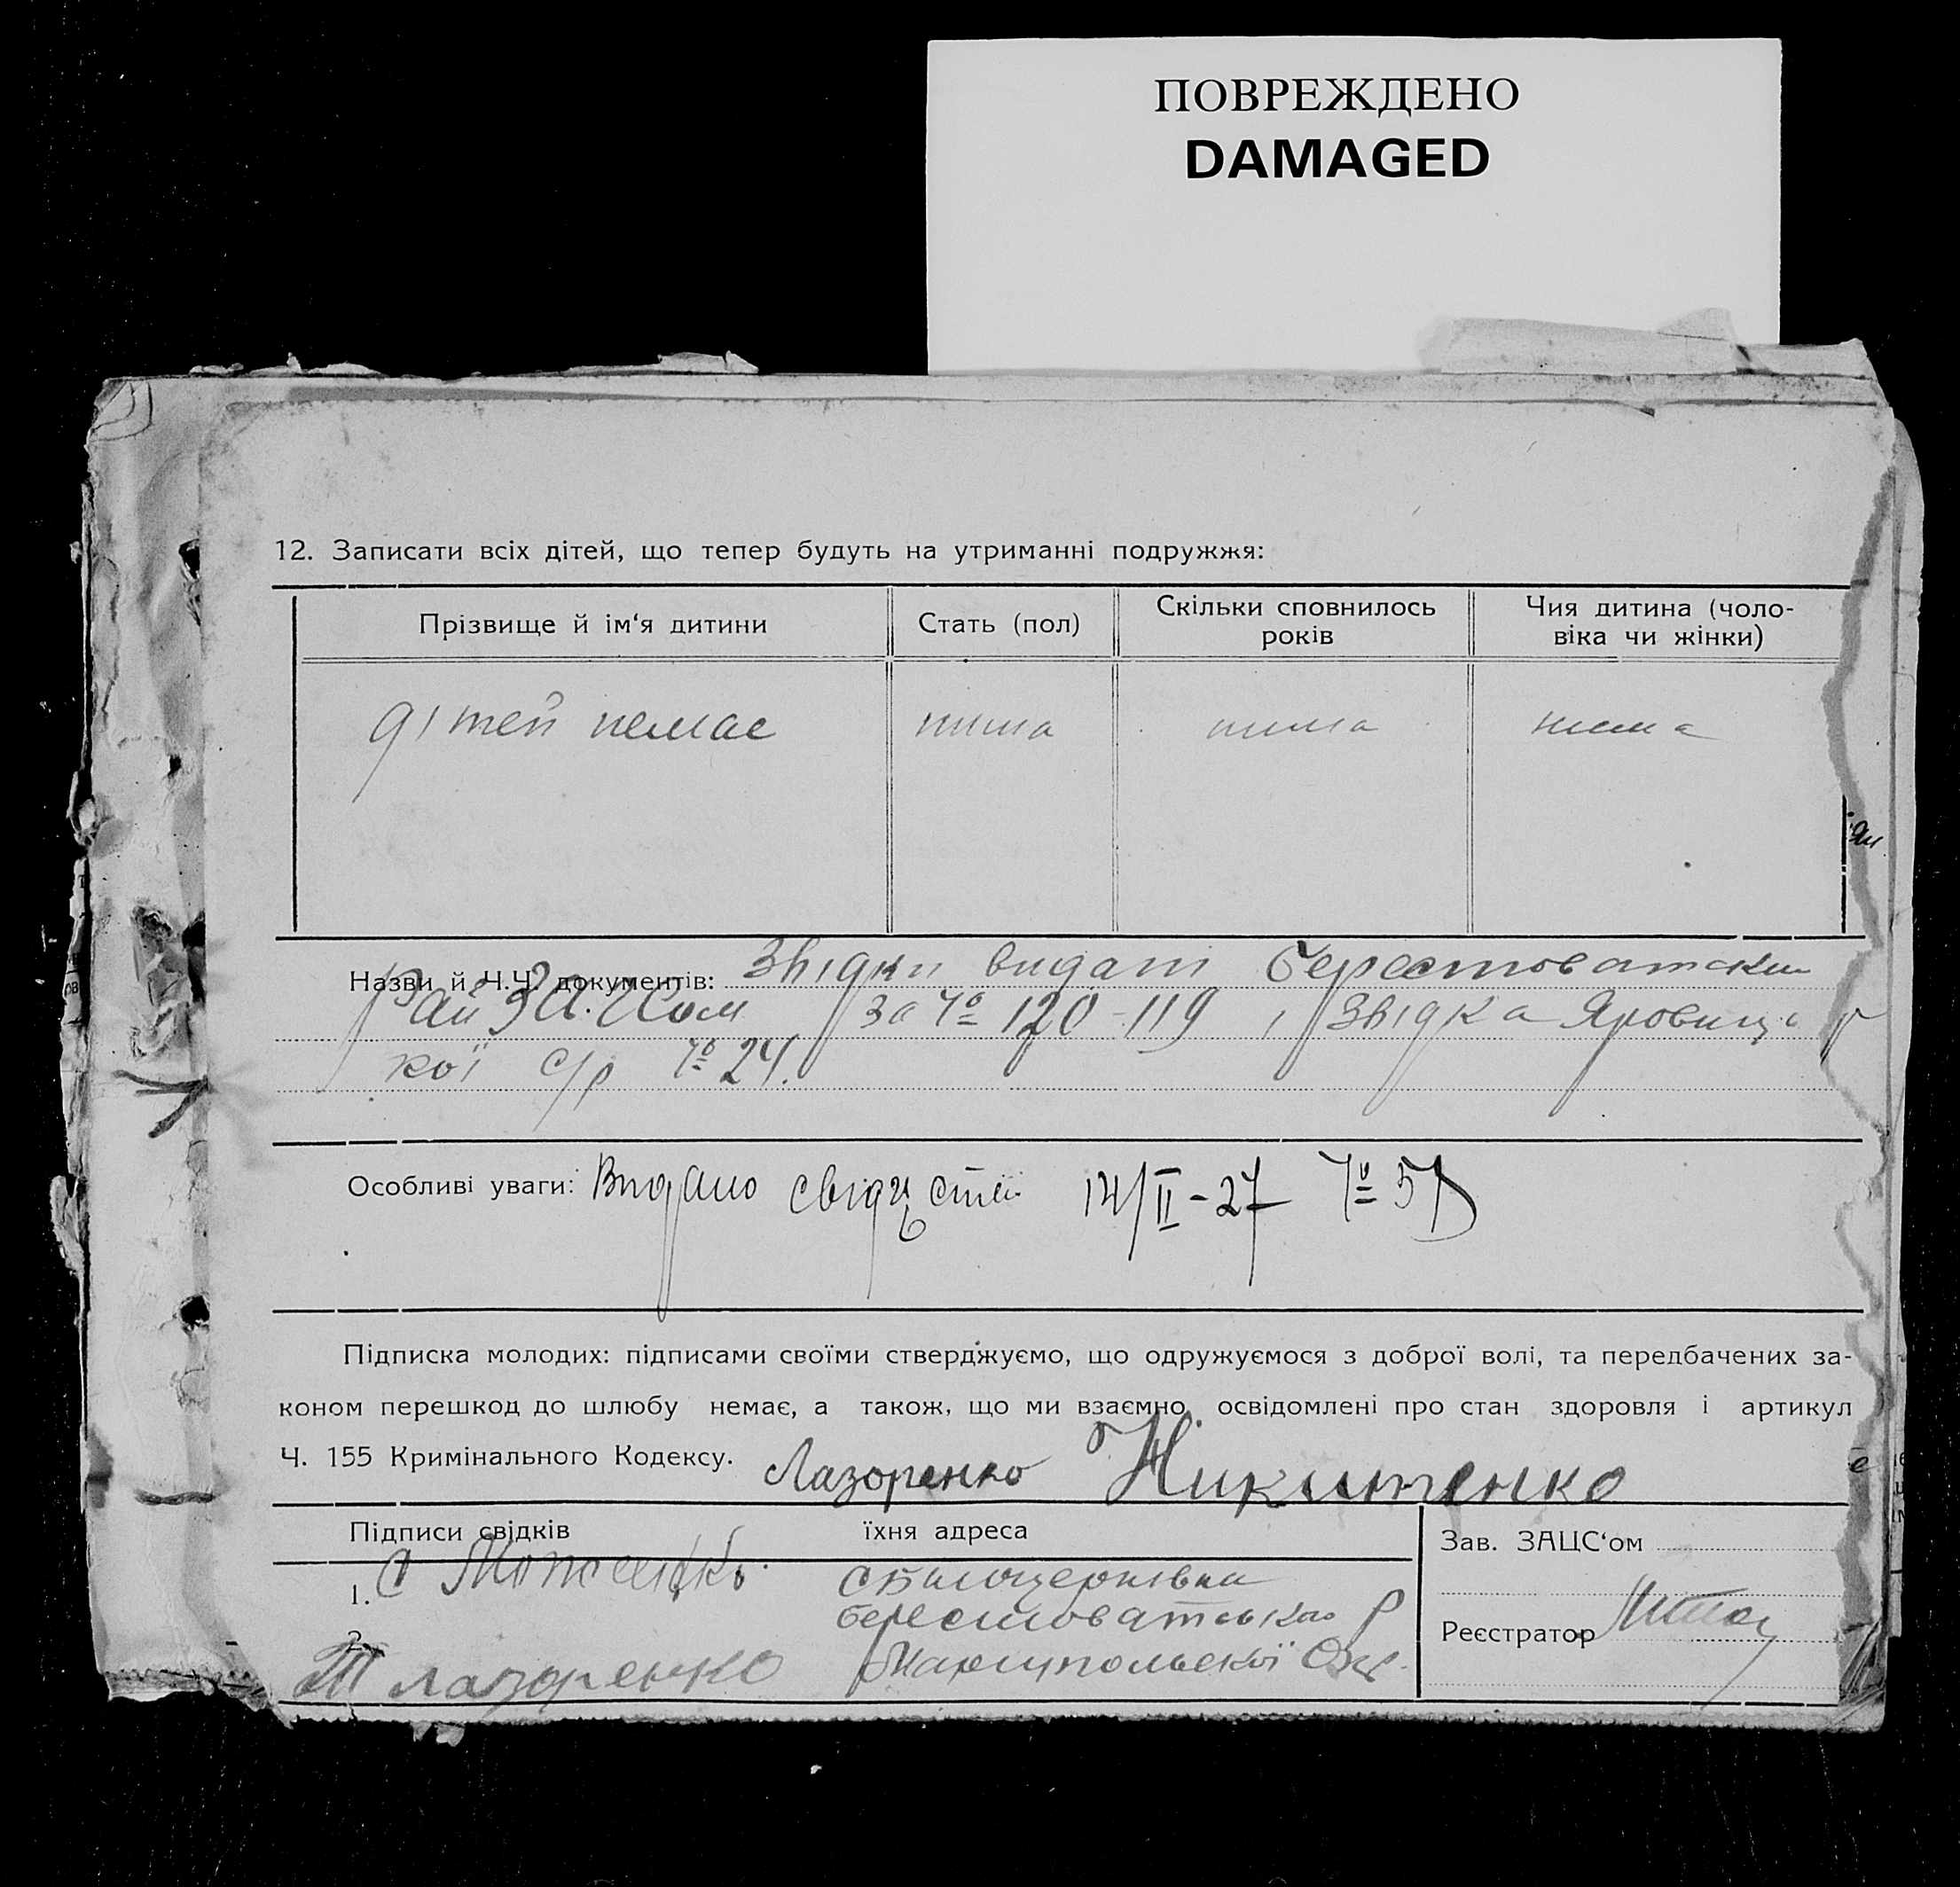 ПОВРЕЖДЕНО
DAMAGED
12. Записати всіх дітей, що тепер будуть на утриманні подружжя:
Прізвище й ім‘я дитини
Стать (пол)
Скільки сповнилось
років
Чия дитина (чоло-
віка чи жінки)
дітей немає нима нима нима
Назви й Ч.Ч. документів: Звідки видані Берестоватским
Рай за № 120-119, Звідка
кої с/р № 24.
Особливі уваги: Видано 14/II-27 № 57
Підписка молодих: підписами своїми стверджуємо, що одружуємося з доброї волі, та передбачених за-
коном перешкод до шлюбу немає, а також, що ми взаємно освідомлені про стан здоровля і артикул
Ч. 155 Кримінального Кодексу. Лазоренко Никитенко
Підписи свідків
їхня адреса
Зав. ЗАЦС‘ом
1.
с Білоцерківка
Берестоватської Р
2.
Т Лазоренко Маріупольскої Окр.
Реєстратор